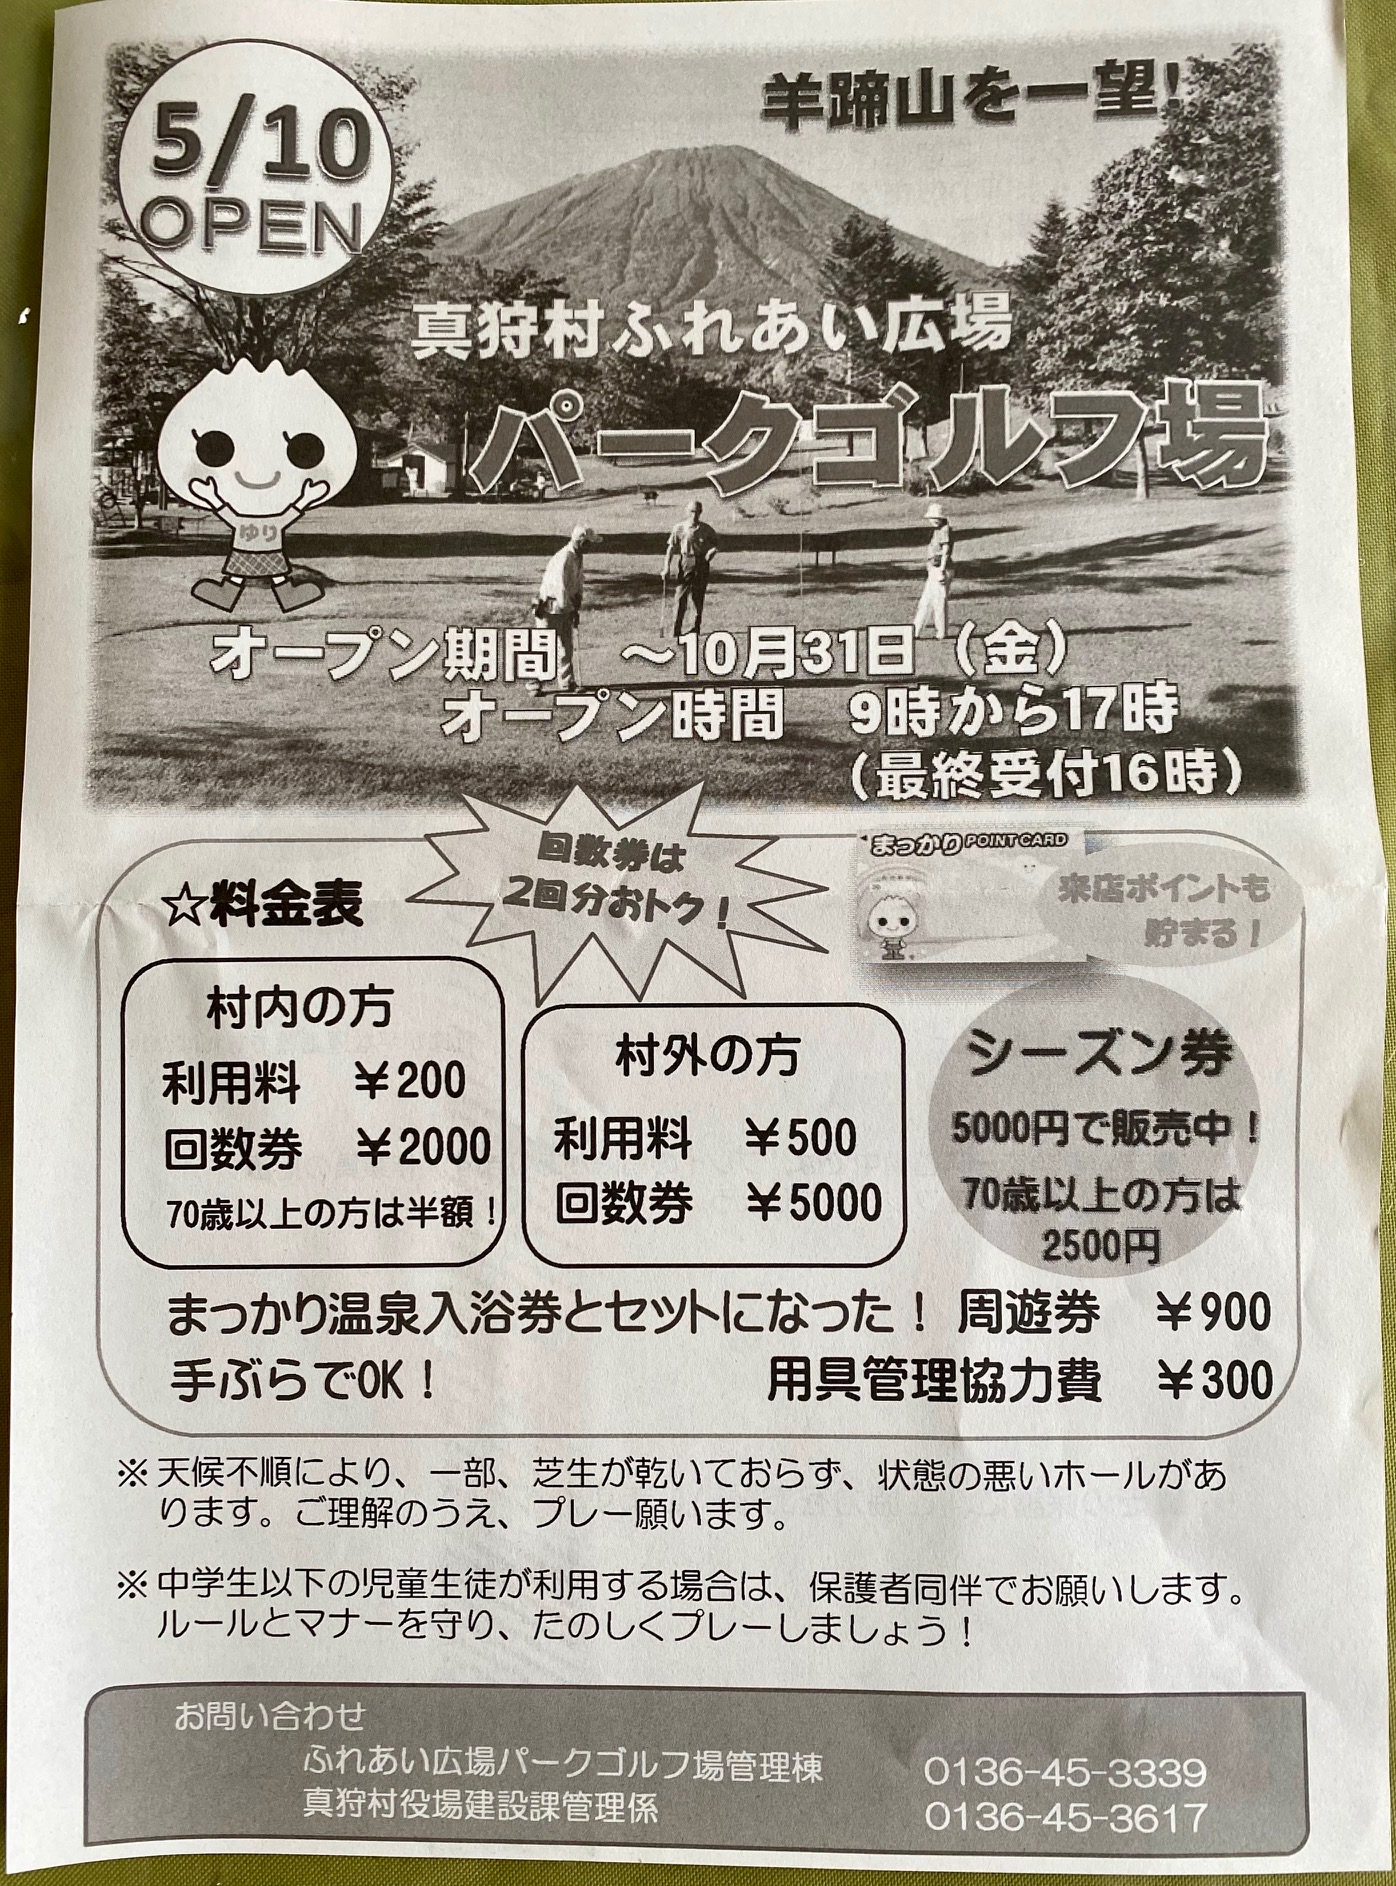 5/10
OPEN
羊蹄山を一望!
真狩村ふれあい広場
パークゴルフ場
ゆり
オープン期間 ～10月31日（金）
オープン時間 9時から17時
（最終受付16時）
☆料金表
回数券は
2回分おトク！
まっかりPOINT CARD
来店ポイントも
貯まる！
村内の方
利用料 ￥200
回数券 ￥2000
70歳以上の方は半額！
村外の方
利用料 ￥500
回数券 ￥5000
シーズン券
5000円で販売中！
70歳以上の方は
2500円
まっかり温泉入浴券とセットになった！ 周遊券 ￥900
手ぶらでOK！ 用具管理協力費 ￥300
※天候不順により、一部、芝生が乾いておらず、状態の悪いホールがあ
ります。ご理解のうえ、プレー願います。
※中学生以下の児童生徒が利用する場合は、保護者同伴でお願いします。
ルールとマナーを守り、たのしくプレーしましょう！
お問い合わせ
ふれあい広場パークゴルフ場管理棟 0136-45-3339
真狩村役場建設課管理係 0136-45-3617